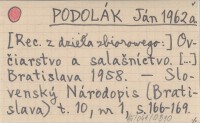 PODOLÁK Ján 1962á
[Rec. z dzieła zbiorowego:] Ov-
čiarstvo a salašníctvo. [...]
Bratislava 1958. – Slo-
venský Národopis (Brati-
slava) t. 10, nr 1, s. 166-169.